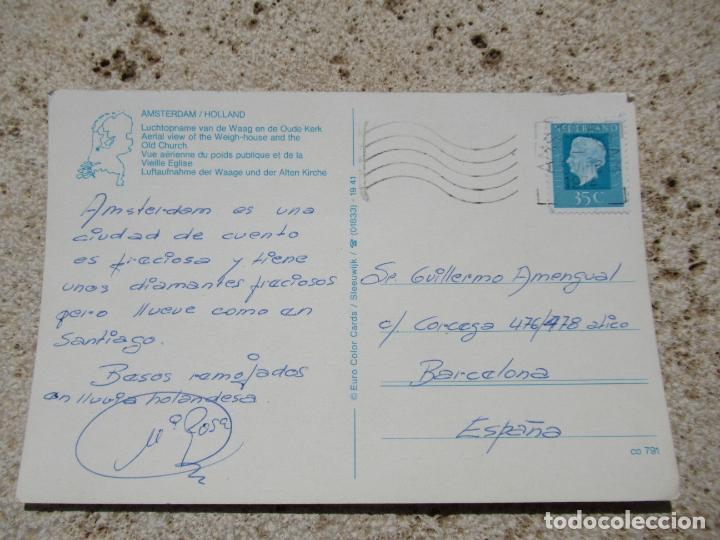 AMSTERDAM / HOLLAND
Luchtopname van de Waag en de Oude Kerk
Aerial view of the Weigh-house and the
Old Church
Vue aérienne du poids publique et de la
Vieille Eglise
Luftaufnahme der Waage und der Alten Kirche
Amsterdam es una
ciudad de cuento
es preciosa y tiene
unos diamantes preciosos
pero llueve como en
Santiago.
Besos remojados
en lluvia holandesa
Mª Rosa
© Euro Color Cards / Sleeuwijk / ☎ (01833) - 19 41
NEDERLAND
35c
Sr. Guillermo Amengual
c/ Corcega 476/478 atico
Barcelona
España
co 791
todocoleccion
todocoleccion.net